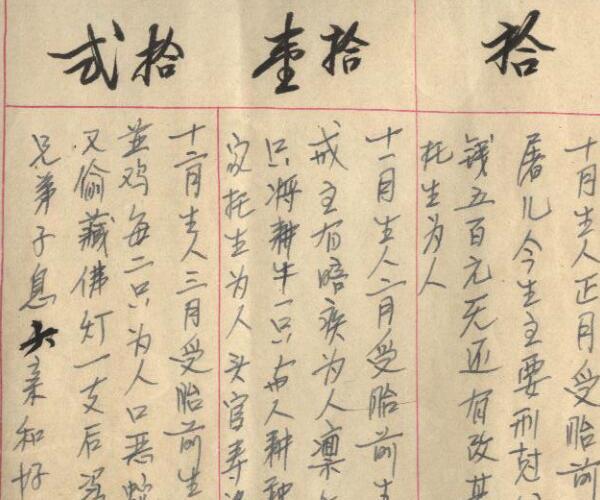 拾
十月生人正月受胎前
屠儿今生主要刑
钱五百元无还有改其
托生为人
拾壹
十一月生人二月受胎前生
戒主有暗疾为人禀
只将耕牛一只与人耕种
家托生为人头官寿
拾弍
十二月生人三月受胎前生
盗鸡每二只为人口恶蛇
又偷藏佛灯一支后
兄弟子息六亲和好